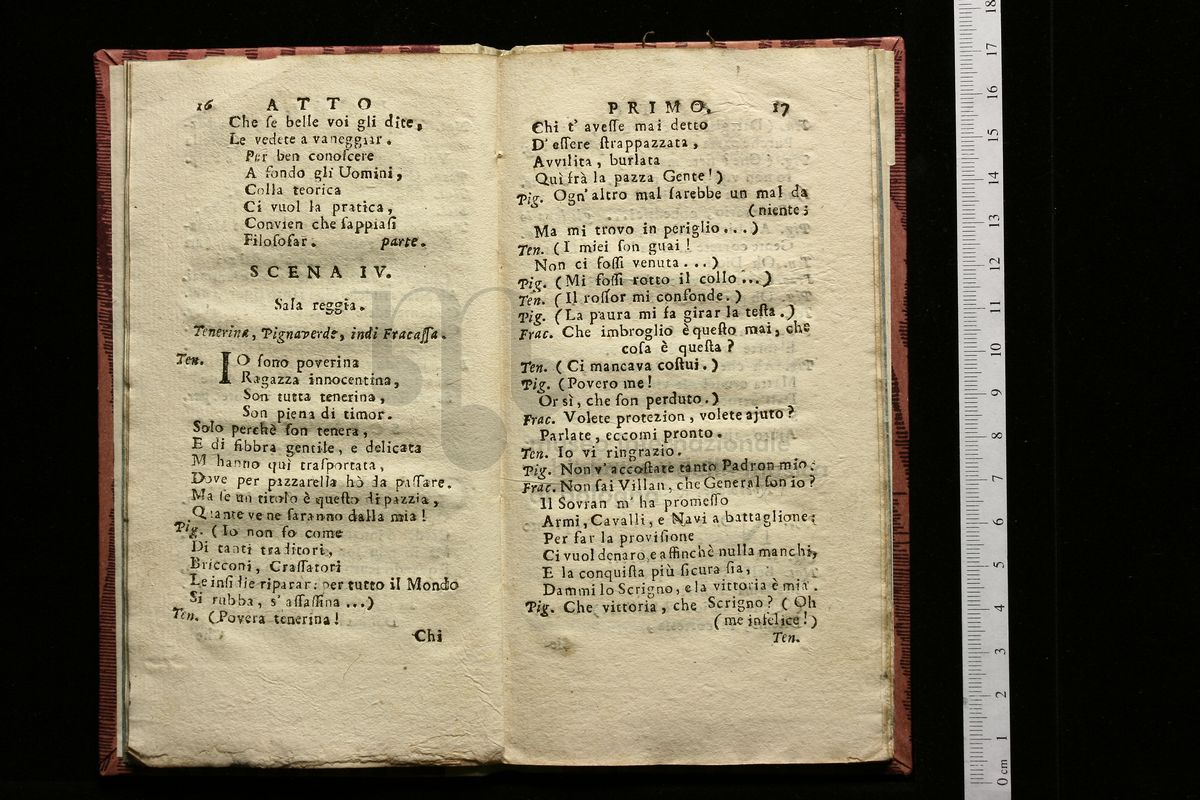 16 ATTO
Che ſe belle voi gli dite,
Le vedete a vaneggiar.
Per ben conoſcere
A fondo gli Uomini,
Colla teorica
Ci vuol la pratica,
Convien che ſappiaſi
Filoſofar. parte.
SCENA IV.
Sala reggia.
Tenerina, Pignaverde, indi Fracaſſa.
Ten. IO ſono poverina
Ragazza innocentina,
Son tutta tenerina,
Son piena di timor.
Solo perchè ſon tenera,
E di fibbra gentile, e delicata
M hanno quì traſportata,
Dove per pazzarella hò da paſſare.
Ma ſe un titolo è queſto di pazzia,
Quante ve ne ſaranno dalla mia!
Pig. (Io non ſo come
Di tanti traditori,
Bricconi, Craſſatori
Le inſidie riparar: per tutto il Mondo
Si rubba, s' aſſaſſina...)
Ten. (Povera tenerina!
Chi
PRIMO. 17
Chi t' aveſſe mai detto
D' eſſere ſtrappazzata,
Avvilita, burlata
Quì frà la pazza Gente!)
Pig. Ogn' altro mal ſarebbe un mal da
(niente;
Ma mi trovo in periglio...)
Ten. (I miei ſon guai!
Non ci foſſi venuta...)
Pig. (Mi foſſi rotto il collo...)
Ten. (Il roſſor mi confonde.)
Pig. (La paura mi fa girar la teſta.)
Frac. Che imbroglio è queſto mai, che
coſa è queſta?
Ten. (Ci mancava coſtui.)
Pig. (Povero me!
Or sì, che ſon perduto.)
Frac. Volete protezion, volete ajuto?
Parlate, eccomi pronto.
Ten. Io vi ringrazio.
Pig. Non v' accoſtate tanto Padron mio:
Frac. Non ſai Villan, che General ſon io?
Il Sovran m' ha promeſſo
Armi, Cavalli, e Navi a battaglione;
Per far la proviſione
Ci vuol denaro, e affinchè nulla manchi,
E la conquiſta più ſicura ſia,
Dammi lo Scrigno, e la vittoria è mia.
Pig. Che vittoria, che Scrigno? (Oh
(me infelice!)
Ten.
0 cm 1 2 3 4 5 6 7 8 9 10 11 12 13 14 15 16 17 18